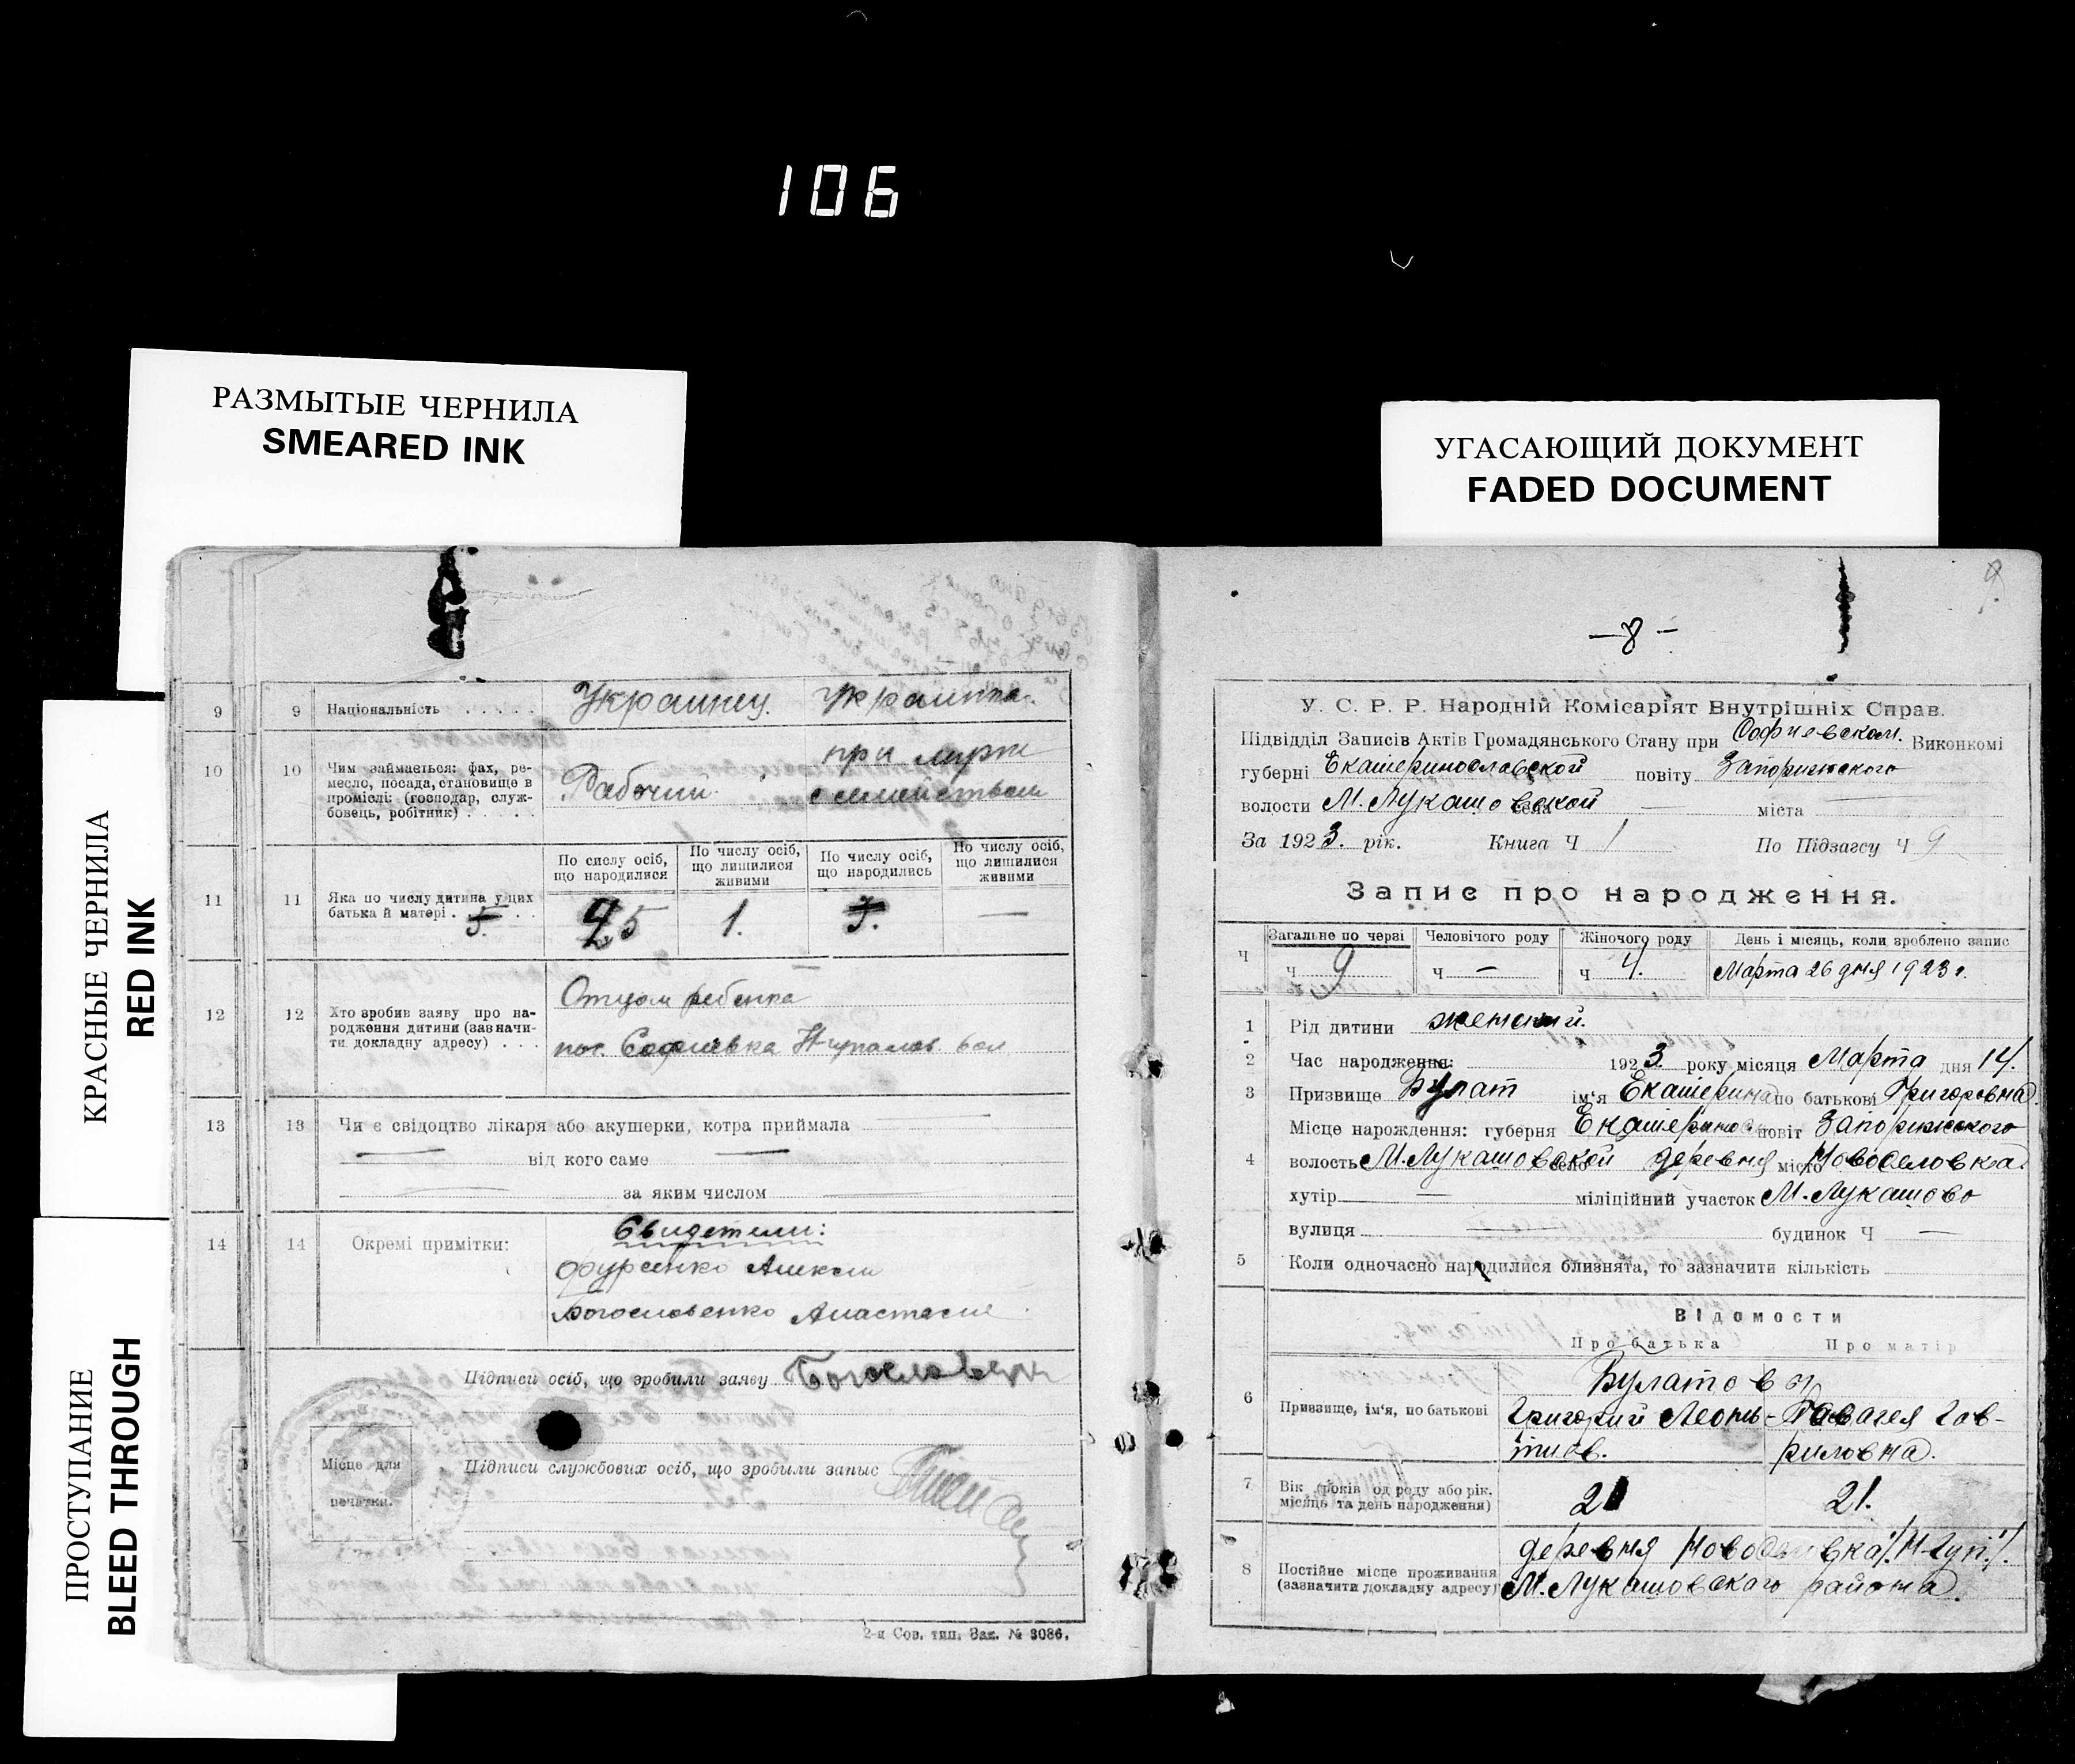 106
РАЗМЫТЫЕ ЧЕРНИЛА
SMEARED INK
УГАСАЮЩИЙ ДОКУМЕНТ
FADED DOCUMENT
КРАСНЫЕ ЧЕРНИЛА
RED INK
ПРОСТУПАНИЕ
BLEED THROUGH
9 9 Національність Украинец. Украинка.
10 10 Чим займається: фах, ре-
месло, посада, становище в
промислі: (господар, служ-
бовець, робітник)
Рабочий при мужи
семейством
По сислу осіб,
що народилися
По числу осіб,
що лишилися
живими
По числу осіб,
що народились
По числу осіб,
що лишилися
живими
11 11 Яка по числу дитина у цих
батька й матері 5.
25 1. 5. —
12 12 Хто зробив заяву про на-
родження дитини (зазначи-
ти докладну адресу)
Отцом ребенка
пос. Софиевка
13 13 Чи є свідоцтво лікаря або акушерки, котра приймала
від кого саме
за яким числом
14 14 Окремі примітки:
Свидетели:
Фурсенко Алексей
Богословенко Анастасия
Підписи осіб, що зробили заяву
Місце для
печатки.
Підписи службових осіб, що зробыли запыс
2-я Сов. тип. Зак. № 3086.
9
— 8 —
У. С. Р. Р. Народній Комісаріят Внутрішніх Справ.
Підвідділ Записів Актів Громадянського Стану при Софиевском. Виконкомі
губерні Екатеринославской повіту Запорижского
волости М. Лукашовской села — міста —
За 1923. рік. Книга Ч 1 По Підзагсу Ч 9
Запис про народження.
Ч Загальне по черзі Человічого роду Жіночого роду День і місяць, коли зроблено запис
ч 9 ч — ч 4. Марта 26 дня 1923 г.
1 Рід дитини женский.
2 Час народження: 1923. року місяця Марта дня 14.
3 Призвище Булат ім'я Екатерина по батькові Григоровна
Місце нарождення: губерня Екатеринос повіт Запорижского
4 волость М. Лукашовской село деревня місто Новоселовка.
хутір — міліційний участок М. Лукашово
вулиця — будинок Ч —
5 Коли одночасно народилися близнята, то зазначити кількість
Відомости
Про батька Про матір
Булатовы
6 Призвище, ім'я, по батькові Григорий Леонь- Гав-
тиев. риловна.
7 Вік (років од роду або рік.
місяць та день народження)
21 21.
деревня Новоселовка
8 Постійне місце проживання
(зазначити докладну адресу)
М. Лукашовского района.